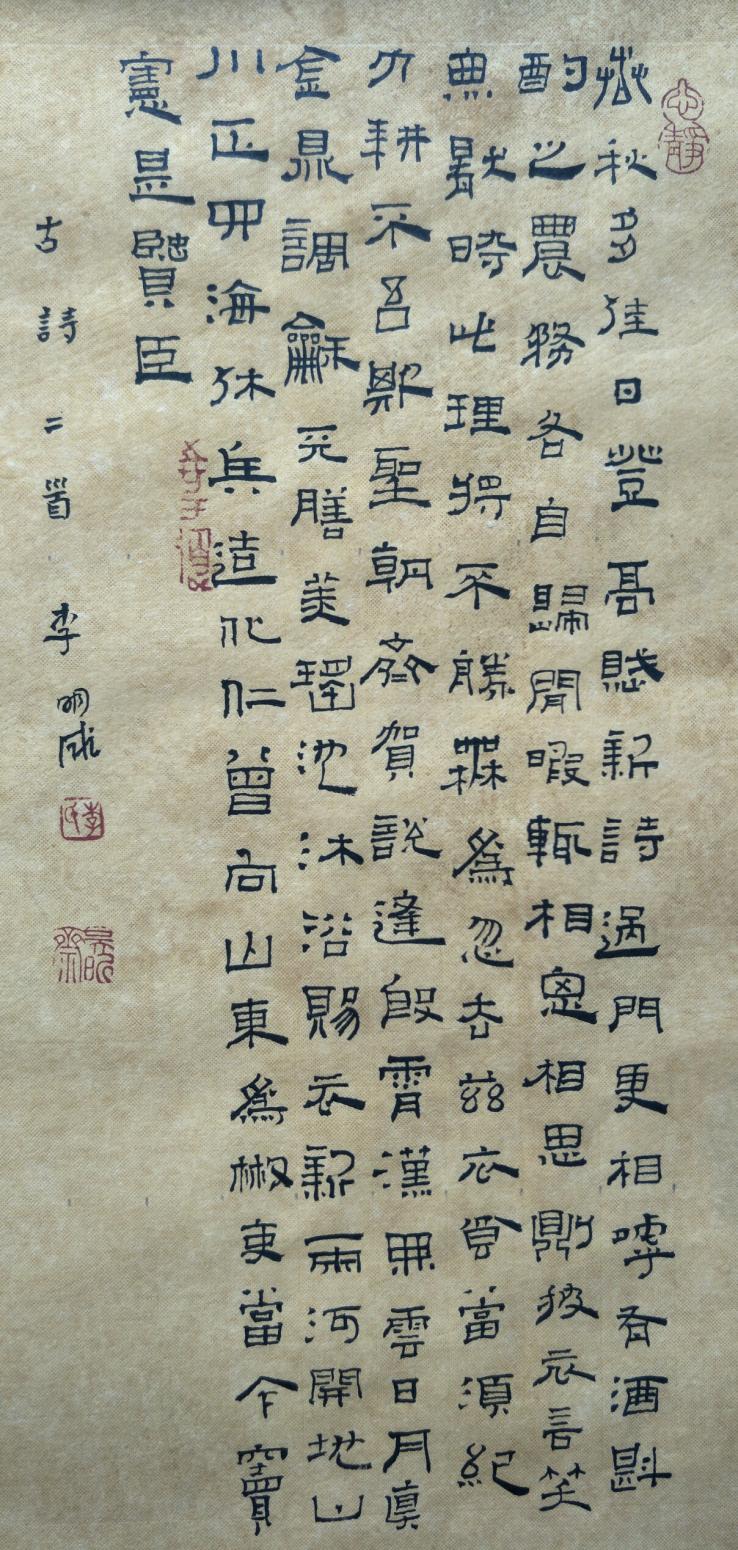 春秋多佳日登高賦新詩過門更相嘑有酒斟
酌之農務各自歸閒暇輒相恖相思則披衣言笑
無厭時此理將不勝無為忽去茲衣食當須紀
力耕不吾欺聖朝齊賀說逢殷霄漢無雲日月真
金鼎調龢天膳美瑤池沐浴賜衣新兩河開地山
川正四海休兵造化仁曾向山東為散吏當今竇
憲是賢臣
古詩二首 李明